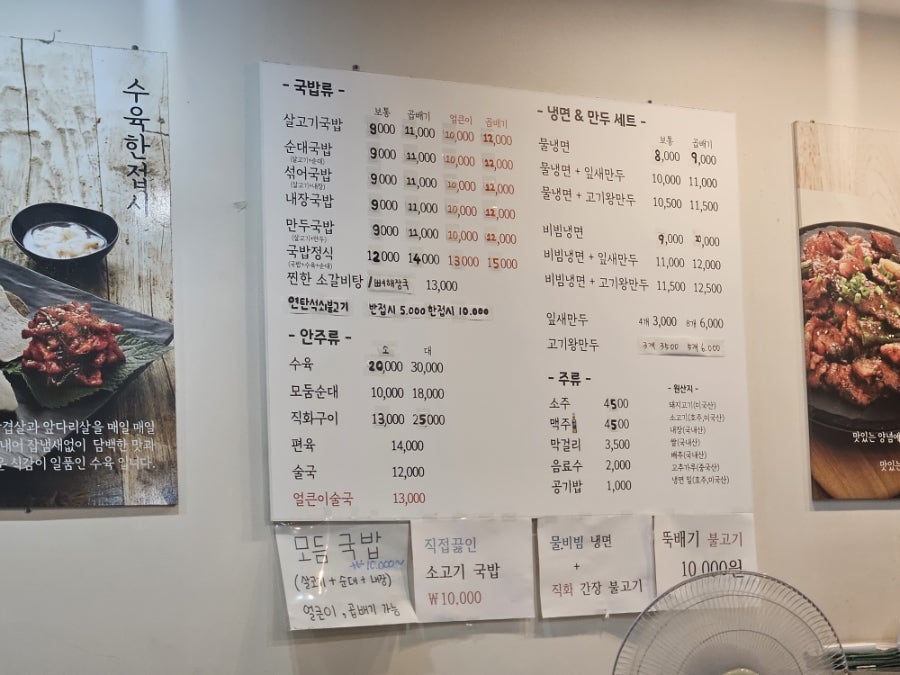 수육한접시
- 국밥류 -
보통 곱배기 얼큰이 곱배기
살고기국밥 9000 11,000 10,000 12,000
순대국밥 9000 11,000 10,000 12,000
(살고기+순대)
섞어국밥 9000 11,000 10,000 12,000
(살고기+내장)
내장국밥 9000 11,000 10,000 12,000
만두국밥 9000 11,000 10,000 12,000
(살고기+만두)
국밥정식 12000 14000 13000 15000
(국밥+수육+순대)
찐한 소갈비탕 / 뼈해장국 13,000
연탄석쇠불고기 반접시 5.000 한접시 10.000
- 안주류 -
소 대
수육 20,000 30,000
모둠순대 10,000 18,000
직화구이 13,000 25000
편육 14,000
술국 12,000
얼큰이술국 13,000
- 냉면 & 만두 세트 -
보통 곱배기
물냉면 8,000 9,000
물냉면 + 잎새만두 10,000 11,000
물냉면 + 고기왕만두 10,500 11,500
비빔냉면 9,000 10,000
비빔냉면 + 잎새만두 11,000 12,000
비빔냉면 + 고기왕만두 11,500 12,500
잎새만두 4개 3,000 8개 6,000
고기왕만두 3개 3500 5개 6.000
- 주류 -
소주 4500
맥주 4500
막걸리 3,500
음료수 2,000
공기밥 1,000
- 원산지 -
돼지고기(미국산)
소고기(호주,미국산)
내장(국내산)
쌀(국내산)
배추(국내산)
고추가루(중국산)
냉면 밀(호주,미국산)
모둠 국밥
10,000~
(살코기 + 순대 + 내장)
얼큰이, 곱배기 가능
직접끓인
소고기 국밥
₩10,000
물.비빔 냉면
+
직화 간장 불고기
뚝배기 불고기
10,000원
겹살과 앞다리살을 매일 매일
내어 잡냄새없이 담백한 맛과
식감이 일품인 수육 입니다.
맛있는 양념에
맛있는